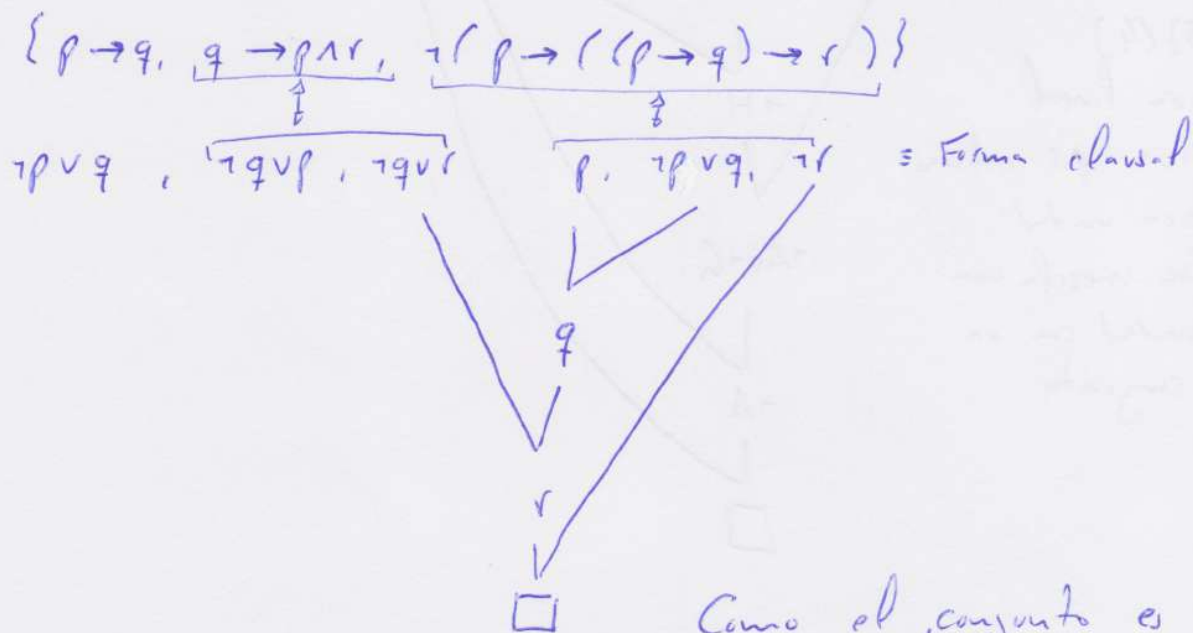 { p → q, q → p ∧ r, ¬( p → ( (p → q) → r ) }
¬p ∨ q , ¬q ∨ p , ¬q ∨ r p, ¬p ∨ q, ¬r ≡ Forma clausal
q
r
□ Como el conjunto es